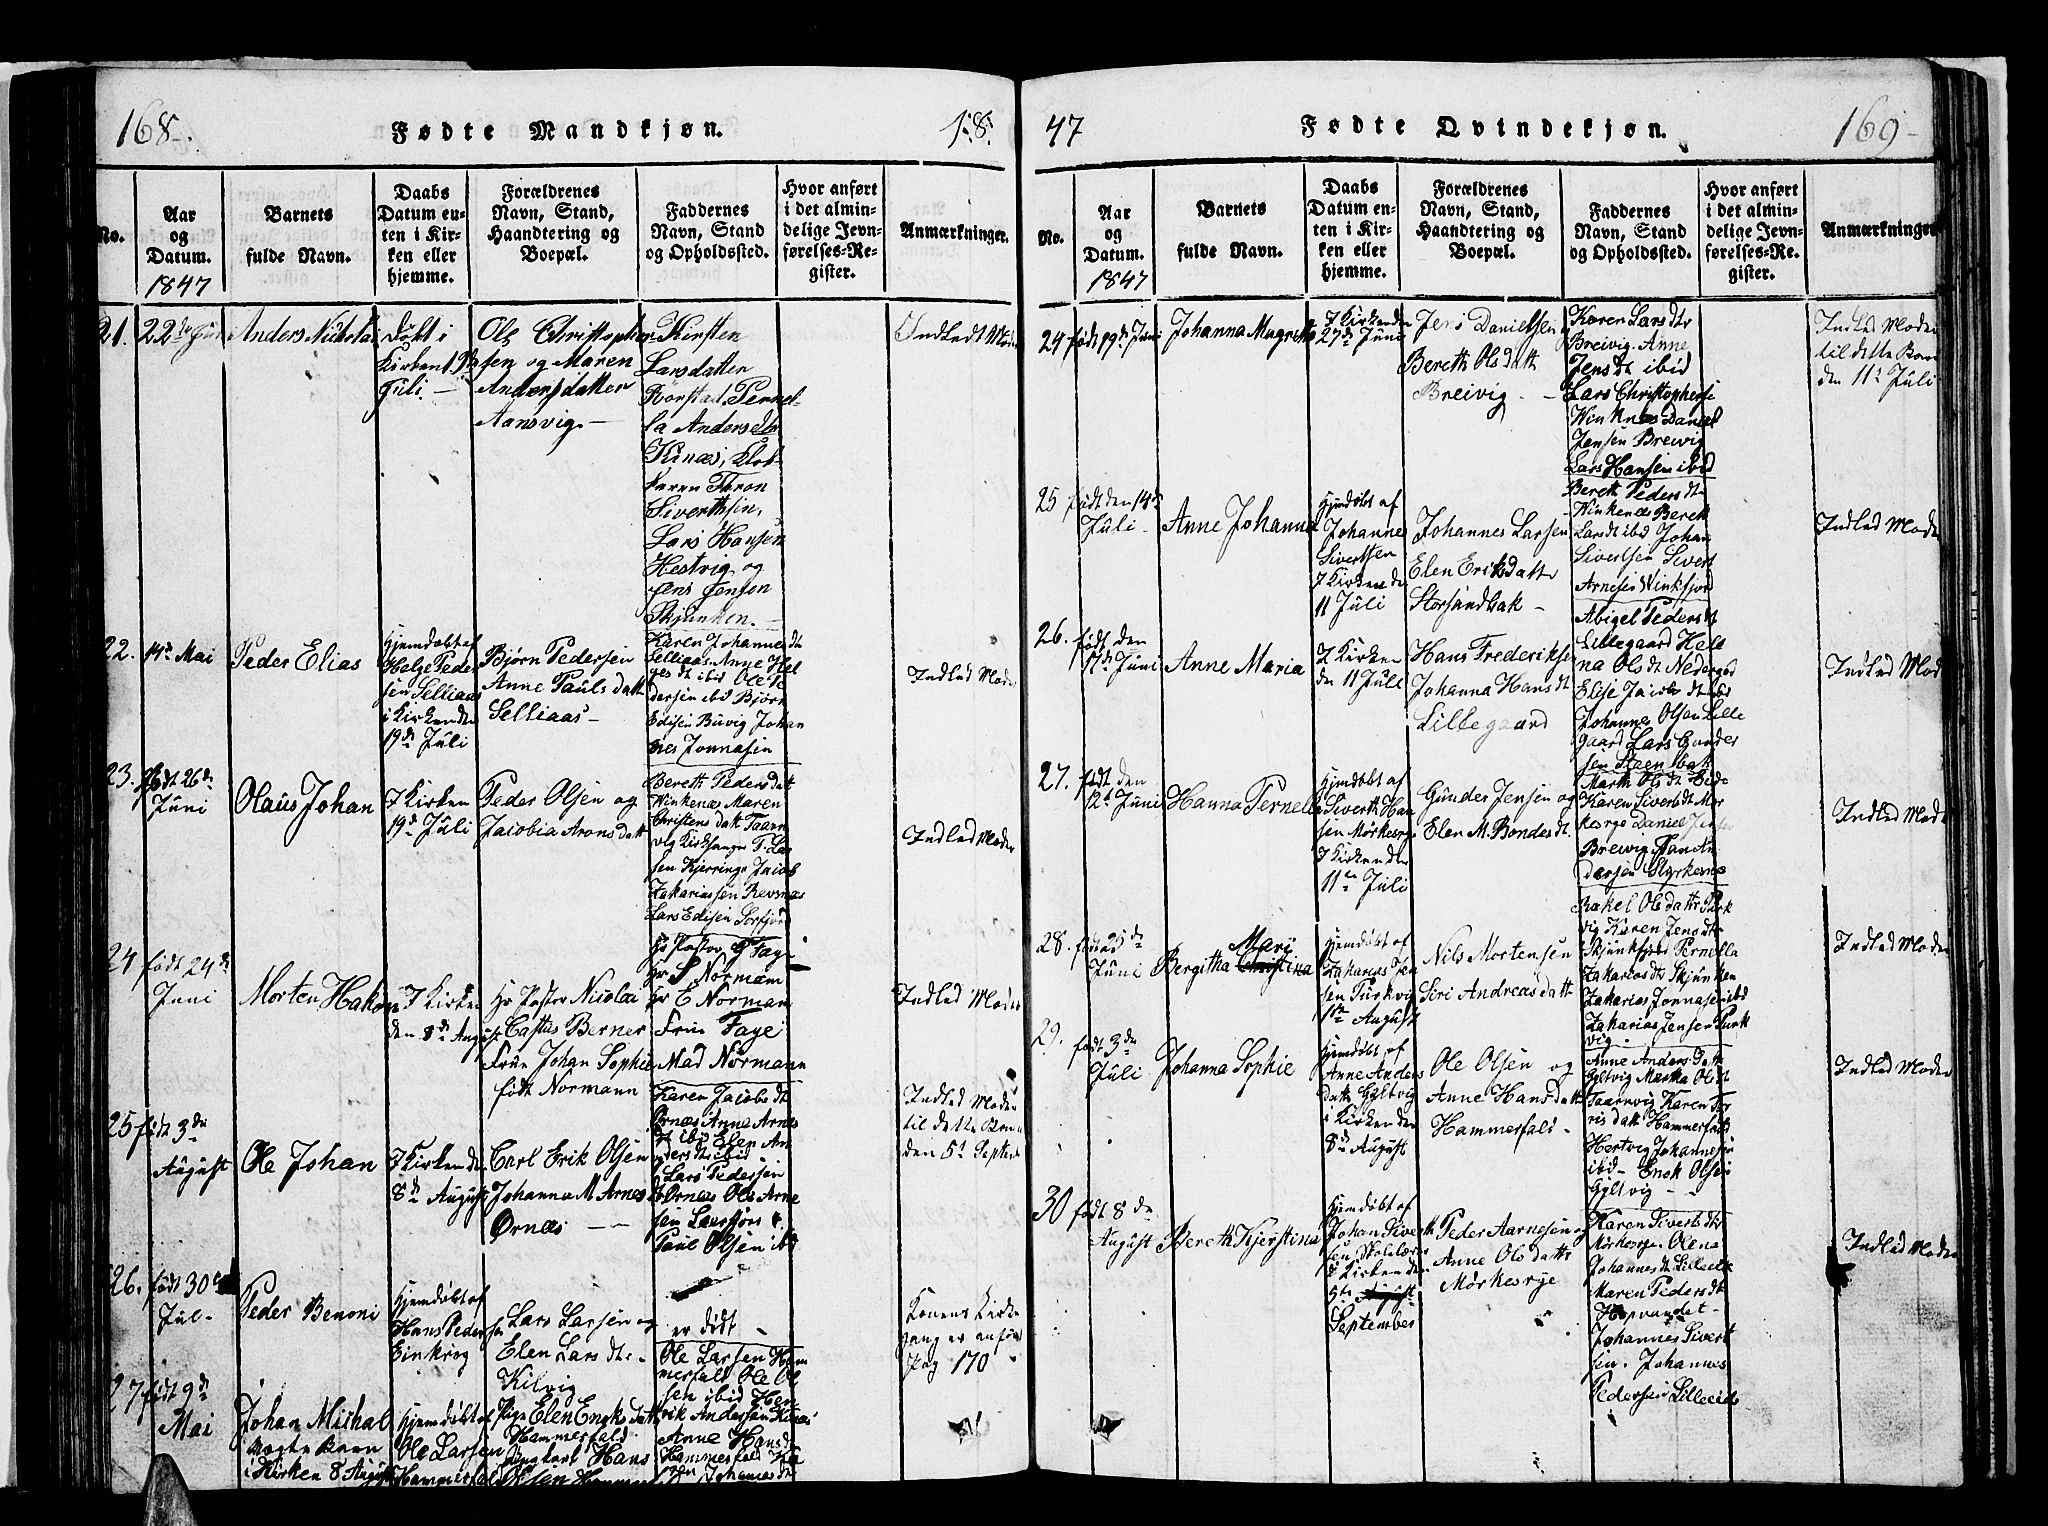 168
Fødte Mandkjøn.
18
No.
Aar
og
Datum.
1847
Barnets
fulde Navn.
Daabs
Datum en-
ten i Kir-
ken eller
hjemme.
Forældrenes
Navn, Stand,
Haandtering og
Boepæl.
Faddernes
Navn, Stand
og Opholdssted.
Hvor anført
i det almin-
delige Jevn-
førelses-Re-
gister.
Anmærkninger.
21.
22de Juni
Anders Nickolai
Døbt i
Kirken
Juli
Ole Christophe
sen og Maren
Andersdatter
Aansvig
Kirsten
Larsdatter
Rörstad, Pernel
la Andersdtr
Kinæs, Klok
keren Thron
Sivertsen,
Lars Hansen
Hestvig og
Jens Jensen
Skjunken.
Indledt Moder
22.
14de Mai
Peder Elias
Hjemdøbt af
Helge Peder
sen Selliaas
i Kirken de
19de Juli
Bjørn Pedersen
Anne Pauls datt
Selliaas
Karen Johannes dt
Selliaas Anne Hel
ges dt ibid Ole Pe
dersen ibid Bjørn
Edisen Buvig Johan
nes Jonnasen
Indled Moder
23.
født 26de
Juni
Olaus Johan
I Kirken
19de Juli
Peder Olsen og
Jacobia Arons datt
Bereth Peders dat
Winkenæs Maren
Christens datt Taarn
vig Kirksanger P. Lar
sen Kjerringø Jacob
Zakariassen Revsnæs
Lars Edisen Sørfjord
Indled Moder
24
født 24de
Juni
Morten Hakon
I Kirken
den 8de August
Hr Pastor Nicolai
Castus Berner
Frue Johan Sophie
født Normann
Hr Pastor Faye
Hr S Normann
Hr E Norman
Frue Faye
Mad Normann
Indled Moder
25
født 3de
August
Ole Johan
I Kirken de
8de August
Carl Erik Olsen
Johanna M Arnes
Ørnæs
Karen Jacobs dt
Ørnæs Anne Arnes
dt ibid Elen An
ders dt ibid
Lars Pedersen
Ørnæs Ole Arne
sen
Paul Olsen ibd
Indled Moder
til dette Barn
den 5te Septem
26.
født 30
Jul-
Peder Benoni
Hjemdøbt af
Hans Peder
sen
Einkrog
Lars Larsen og
Elen Lars dtr
Kilvig
er dødt
Konens Kirke
gang er anført
Pag 170
27
født 9de
Mai
Johan Michal
Uægte Barn
i Kirken 8 August
Hjemdøbt af
Ole Larsen
Hammerfal
Pige Elen Enoks datt
Hammerfald
Ungkarl Hans
Olsen
Ole Larsen Ham
merfald Ole Ol
sen ibid Hen
rik Andersen Kinæs
Anne Hansd
Hammerfald Ka
ren Johannes dt
47
Fødte Qvindekjøn.
169
No.
Aar
og
Datum.
1847
Barnets
fulde Navn.
Daabs
Datum en-
ten i Kir-
ken eller
hjemme.
Forældrenes
Navn, Stand,
Haandtering og
Boepæl.
Faddernes
Navn, Stand
og Opholdssted.
Hvor anført
i det almin-
delige Jevn-
førelses-Re-
gister.
Anmærkninger
24
født 19de Juni
Johanna Magrete
I Kirken de
27de Juni
Jens Danielsen
Bereth Ols datt
Breivig
Karen Lars dtr
Breivig. Anne
Jens dt ibid
Lars Christophersen
Winknæs Daniel
Jensen Breivig
Lars Hansen ibid
Indled Moder
til dette Barn
den 11te Juli
25
født den 14de
Juli
Anne Johanna
Hjemdøbt af
Johannes
Sivertsen
I Kirken de
11 Juli
Johannes Larsen
Elen Eriksdatt
Storsandbak
Bereth Peders dt
Winkenæs Bereth
Lars dt ibid Johan
Sivertsen Sivert
Arnesen Winkfjord
Indled Moder
26.
født den
17de Juni
Anne Maria
I Kirken
den 11 Juli
Hans Frederiksen
Johanna Hans dt
Lillegaard
Abigel Peders dt
Lillegaard Hele
na Ols dt
Elise Jacobs dt ibd
Johannes Olsen Lille
gaard Lars Gunder
sen Steenbak
Indled Mod
27.
født den
12te Juni
Hanna Pernelle
Hjemdøbt af
Siverth Han
sen Mørkesrge
I Kirken de
11te Juli
Gunder Jensen og
Elen M. Bondes dt
Marth Ols dt
Karen Siverts dt Mør
kesrge Daniel Jensen
Breivig
dersen Styrkesnæs
Indled Moder
28.
født 25de
Juni
Mari
Bergitha Christina
Hjemdøbt af
Zakarias Jen
sen Purkvig
1te August
Nils Mortensen
Siri Andreas datt
Rakel Ols datt Purk
vig Karen Jens dt
Skjunkfjord Pernella
Zakarias dt Skjunken
Zakarias Jonnasen ibd
Zakarias Jensen Purk
vig.
Indled Moder
29.
født 3de
Juli
Johanna Sophie
Hjemdøbt af
Anne Anders
datt Gyltvig
i Kirken den
8de August
Ole Olsen og
Anne Hans datt
Hammerfald
Anne Anders datt
Gyltvig Martha Ols dt
Taarnvig Karen
datt Hammerfald
Hertvig Johannesen
ibid - Enok Olsen
Gyltvig
Indled Moder
30
født 8de
August
Bereth Kjerstina
Hjemdøbt af
Johan Siverth
sen
I Kirken den
5te August
September
Peder Aarnesen og
Anne Ols datt
Mørkesrge
Karen Siverts dtr
Mørkesrge. Olena
Johannes dt Lilleeide
Maren Peders dt
Hopvandet
Johannes Sivert
sen. Johannes
Pedersen Lilleeide
Indled Moder